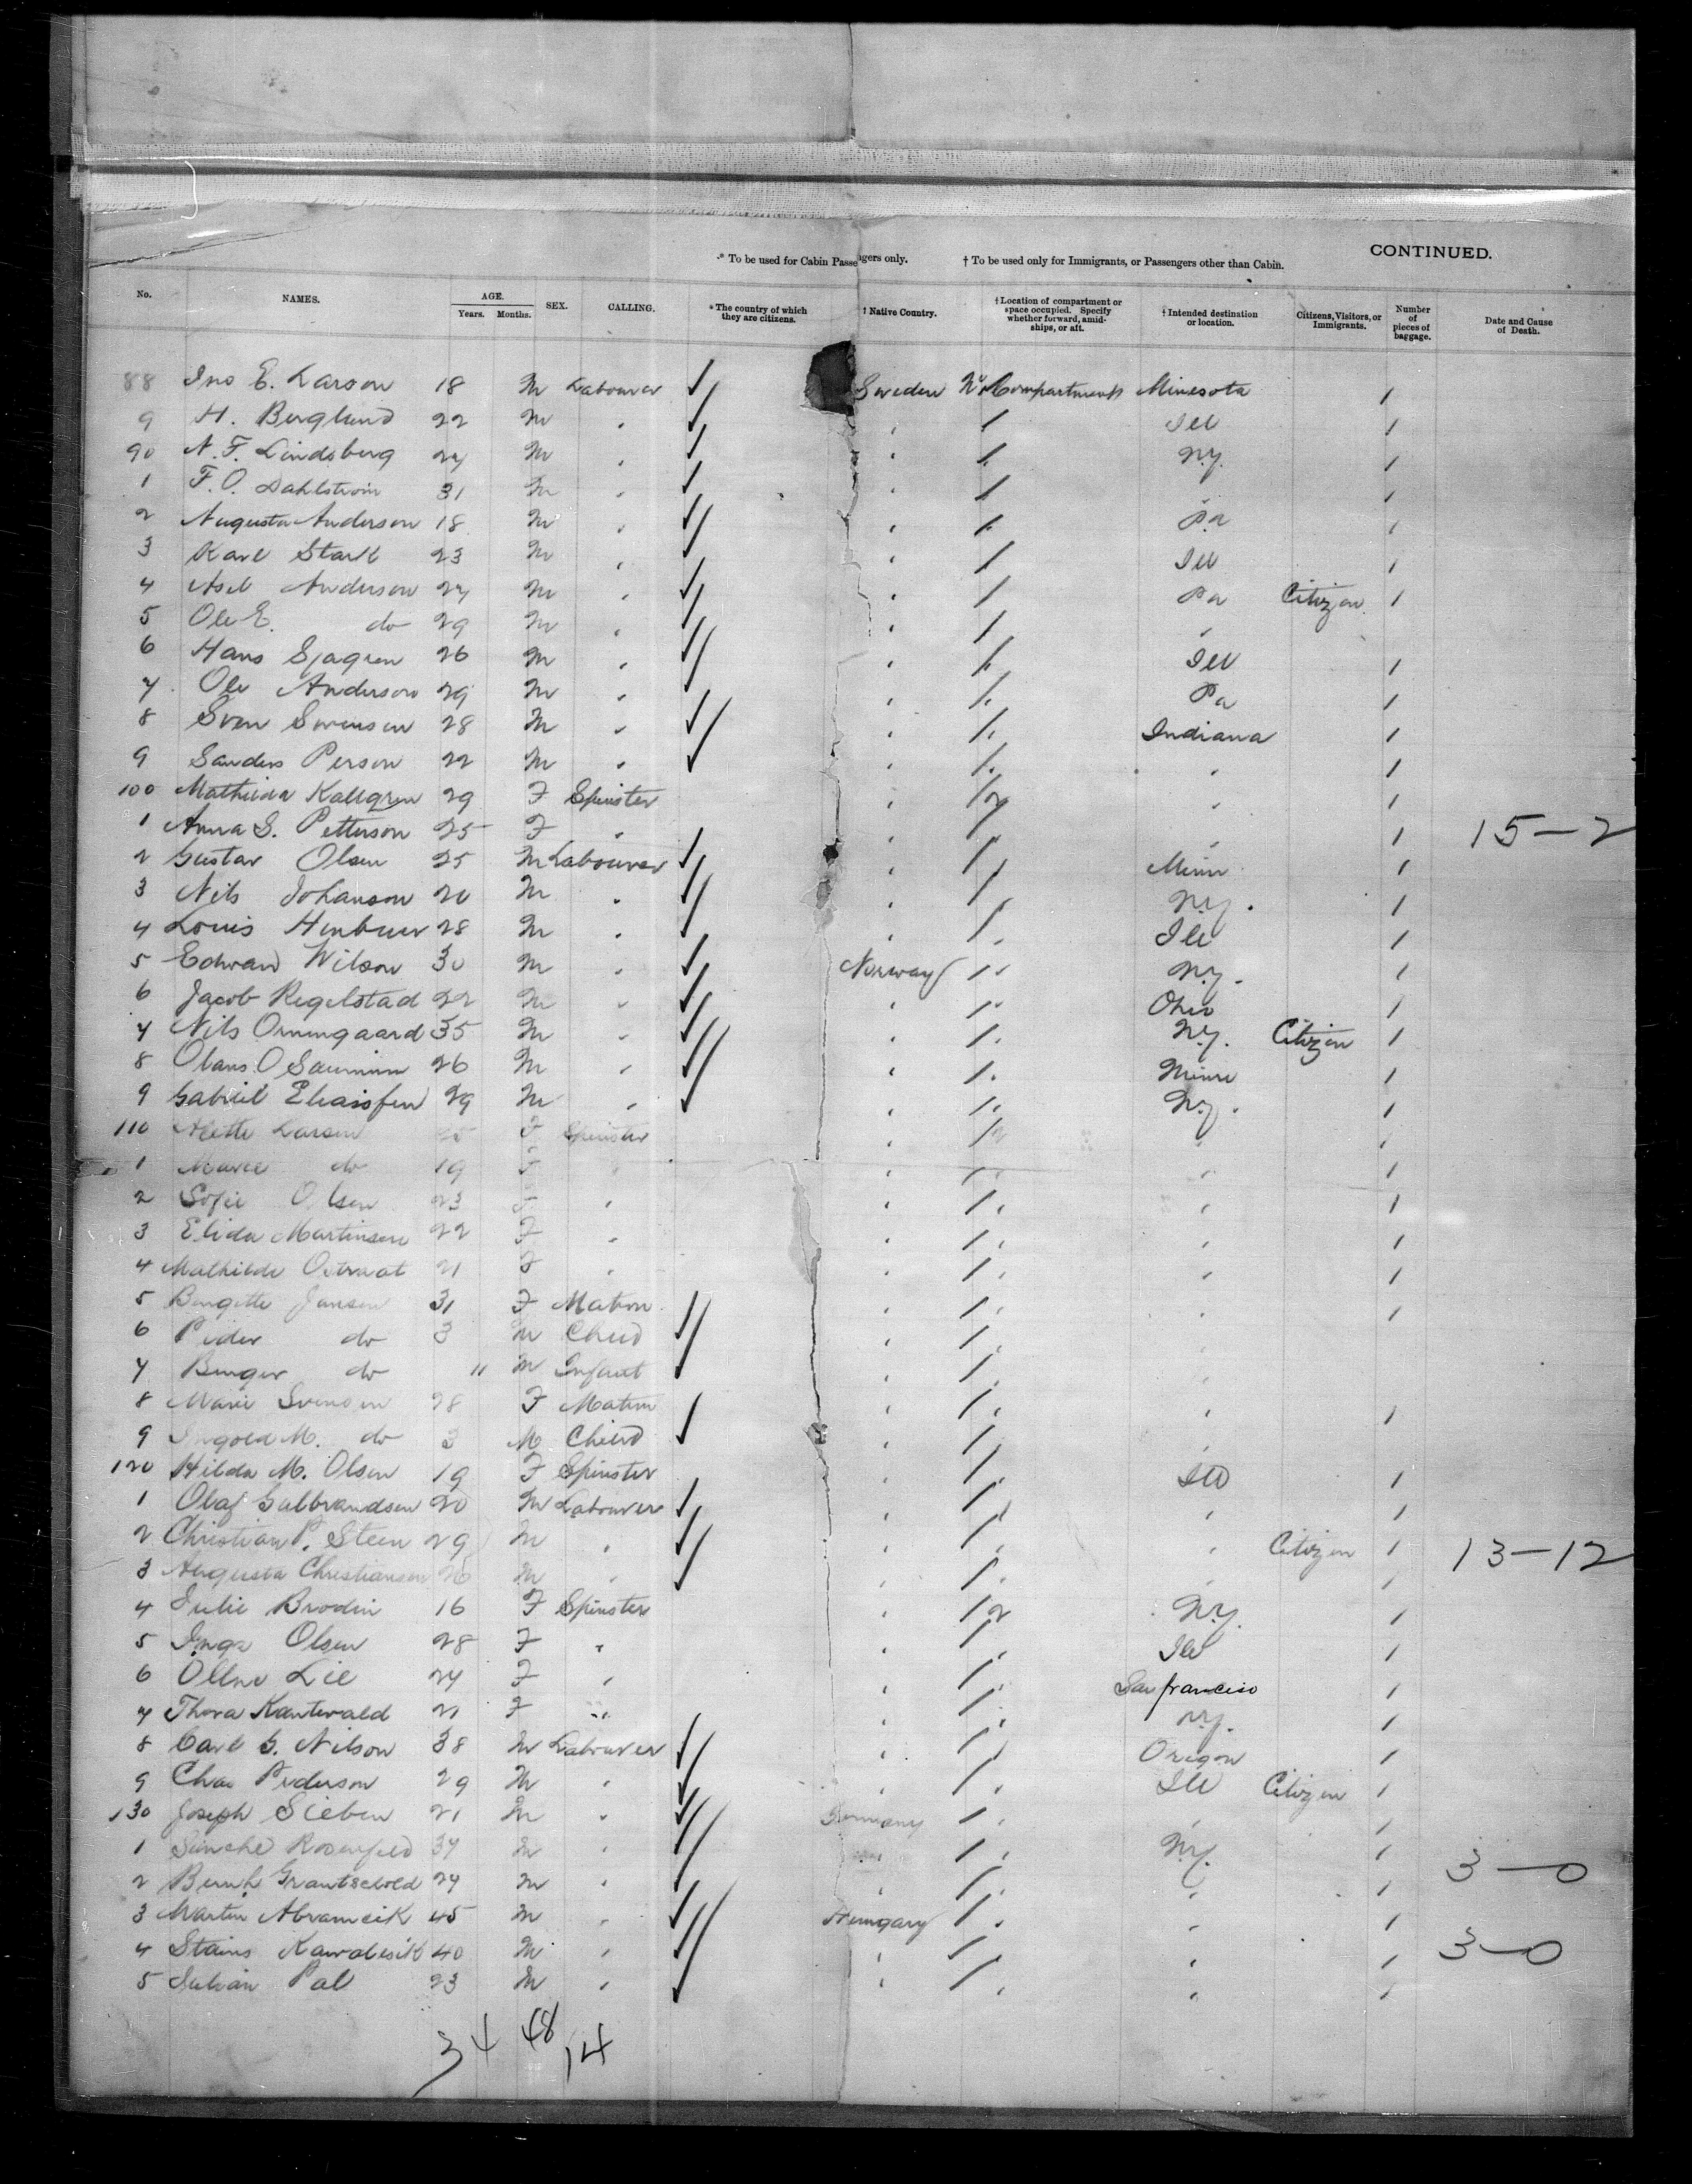 CONTINUED.
* To be used for Cabin Passengers only. † To be used only for Immigrants, or Passengers other than Cabin.
No. NAMES. AGE. Years. Months. SEX. CALLING. * The country of which they are citizens. † Native Country. † Location of compartment or space occupied. Specify whether forward, amidships, or aft. † Intended destination or location. Citizens, Visitors, or Immigrants. Number of pieces of baggage. Date and Cause of Death.
88 Jno E. Larson 18 M Labourer ✓ Sweden No 1 Compartment Minesota 1
9 H. Berglund 22 M " ✓ " 1 " Ill 1
90 N. F. Lindsberg 27 M " ✓ " 1 " N.Y. 1
1 F. O. Dahlstrom 31 M " ✓ " 1 " " 1
2 Augusta Anderson 18 M " ✓ " 1 " Pa 1
3 Karl Stark 23 M " ✓ " 1 " Ill 1
4 Axel Anderson 27 M " ✓ " 1 " Pa Citizen 1
5 Ole E. do 29 M " ✓ " 1 " "
6 Hans Sjagren 26 M " ✓ " 1 " Ill 1
7 Ole Anderson 29 M " ✓ " 1 " Pa 1
8 Sven Swenson 28 M " ✓ " 1 " Indiana 1
9 Sanders Person 22 M " ✓ " 1 " " 1
100 Mathilda Kallgren 29 F Spinster " 1 2 " 1
1 Anna S. Petterson 25 F " " 1 " " 1 15-2
2 Gustav Olsen 25 M Labourer ✓ " 1 " Minn 1
3 Nils Johanson 20 M " ✓ " 1 " N.Y. 1
4 Louis 28 M " ✓ " 1 " Ill 1
5 Edward Wilson 30 M " ✓ Norway 1 " N.Y. 1
6 Jacob Regelstad 22 M " ✓ " 1 " Ohio 1
7 Nils 35 M " ✓ " 1 " N.Y. Citizen 1
8 26 M " ✓ " 1 " Minn 1
9 Gabriel 29 M " ✓ " 1 " N.Y. 1
110 Alette Larsen 25 F Spinster " 1 2 " 1
1 Marie do 19 F " " 1 " " 1
2 Sofie Olsen 23 F " " 1 " " 1
3 Elida Martinsen 22 F " " 1 " " 1
4 Mathilde Ostraat 21 F " " 1 " " 1
5 Bergitte Jansen 31 F Matron ✓ " 1 " " 1
6 Peder do 3 M Child ✓ " 1 " "
7 Birger do 11 M Infant ✓ " 1 " "
8 Marie Svensen 28 F Matron " 1 " " 1
9 Ingold M. do 3 M Child ✓ " 1 " "
120 Hilda M. Olsen 19 F Spinster " 1 " Ill 1
1 Olaf Gulbrandsen 20 M Labourer ✓ " 1 " " 1
2 Christian P. Steen 29 M " ✓ " 1 " " Citizen 1 13-12
3 Augusta Christiansen 26 M " ✓ " 1 " " 1
4 Julie Brodin 16 F Spinster " 1 2 N.Y. 1
5 Inga Olsen 28 F " " 1 " Ill 1
6 Lie 24 F " " 1 " San franciso 1
7 Thora Kantwald 21 F " " 1 " N.Y. 1
8 Carl G. Nilson 38 M Labourer ✓ " 1 " Oregon 1
9 Chas Pederson 29 M " ✓ " 1 " Ill Citizen 1
130 Joseph Sieben 21 M " ✓ Germany 1 " " 1
1 Rosenfeld 37 M " ✓ " 1 " N.Y. 1
2 24 M " ✓ " 1 " " 1 3-0
3 Martin Abramcik 45 M " ✓ Hungary 1 " " 1
4 40 M " ✓ " 1 " " 1 3-0
5 Pal 23 M " ✓ " 1 " " 1
34 48 14